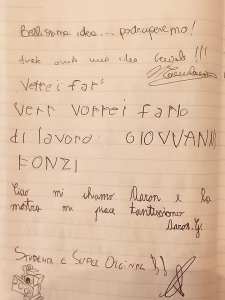 Bellissima idea... 
anche una idea !!!
Vorrei far
Verr vorrei farlo
di lavoro GIOVVANNI
FONZI
Ciao mi chiamo Aaron e la
motra mi piace tantissimo
Aaron.G.
STUPENDA E SUPER ORIGINALE !!!